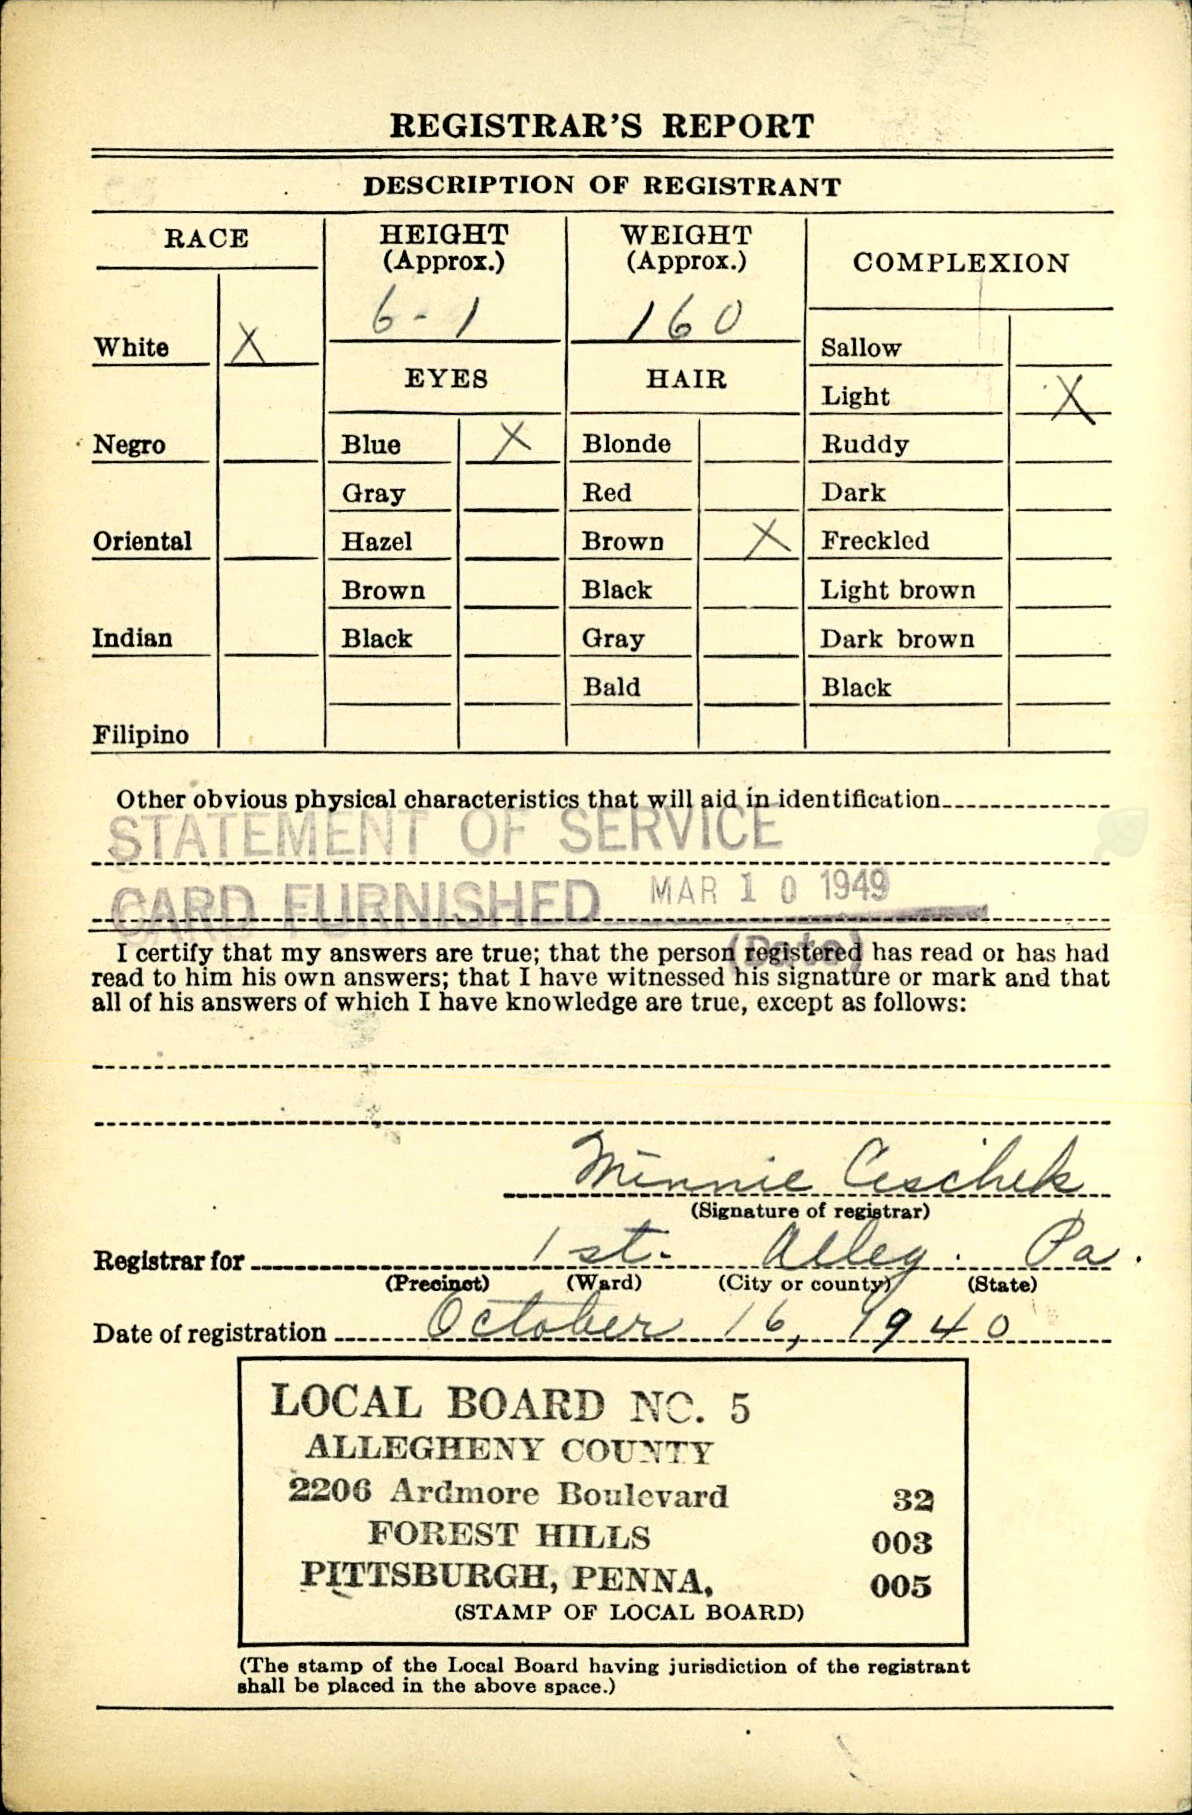 REGISTRAR'S REPORT
DESCRIPTION OF REGISTRANT
RACE
HEIGHT
(Approx.)
WEIGHT
(Approx.)
COMPLEXION
6-1
160
White X
Sallow
EYES
HAIR
Light X
Negro
Blue X
Blonde
Ruddy
Gray
Red
Dark
Oriental
Hazel
Brown X
Freckled
Brown
Black
Light brown
Indian
Black
Gray
Dark brown
Bald
Black
Filipino
Other obvious physical characteristics that will aid in identification
STATEMENT OF SERVICE
CARD FURNISHED MAR 10 1949
(Date)
I certify that my answers are true; that the person registered has read or has had
read to him his own answers; that I have witnessed his signature or mark and that
all of his answers of which I have knowledge are true, except as follows:
Minnie
(Signature of registrar)
Registrar for 1st. Alleg. Pa.
(Precinct) (Ward) (City or county) (State)
Date of registration October 16, 1940
LOCAL BOARD NO. 5
ALLEGHENY COUNTY
2206 Ardmore Boulevard 32
FOREST HILLS 003
PITTSBURGH, PENNA. 005
(STAMP OF LOCAL BOARD)
(The stamp of the Local Board having jurisdiction of the registrant
shall be placed in the above space.)